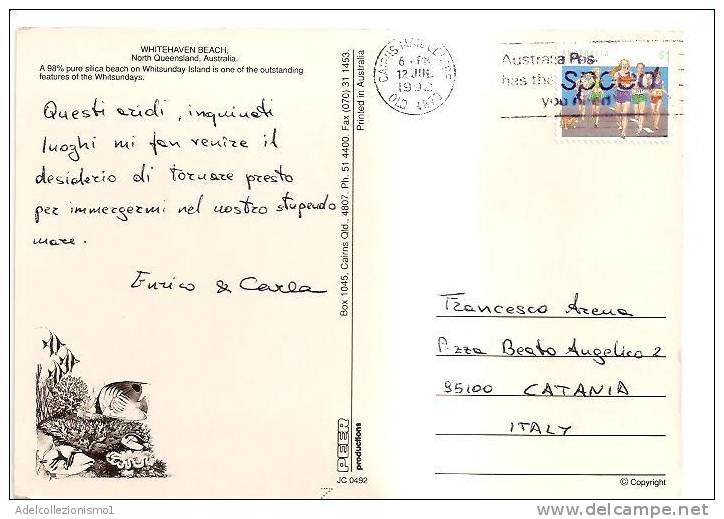 WHITEHAVEN BEACH,
North Queensland, Australia.
A 98% pure silica beach on Whitsunday Island is one of the outstanding
features of the Whitsundays.
Questi aridi, inquinati
luoghi mi fan venire il
desiderio di tornare presto
per immergermi nel nostro stupendo
mare.
Enrico & Carla
Box 1045, Cairns Qld., 4807. Ph. 51 4400. Fax (070) 31 1453.
Printed in Australia
PEER
productions
JC 0492
CAIRNS MAIL CENTRE
6 - PM
12 JUL
1992
QLD 4870
Australia Pos
has the speed
you need
$1
Francesco Arena
P.zza Beato Angelico 2
95100 CATANIA
ITALY
© Copyright
Adelcollezionismo1
delcampe.net